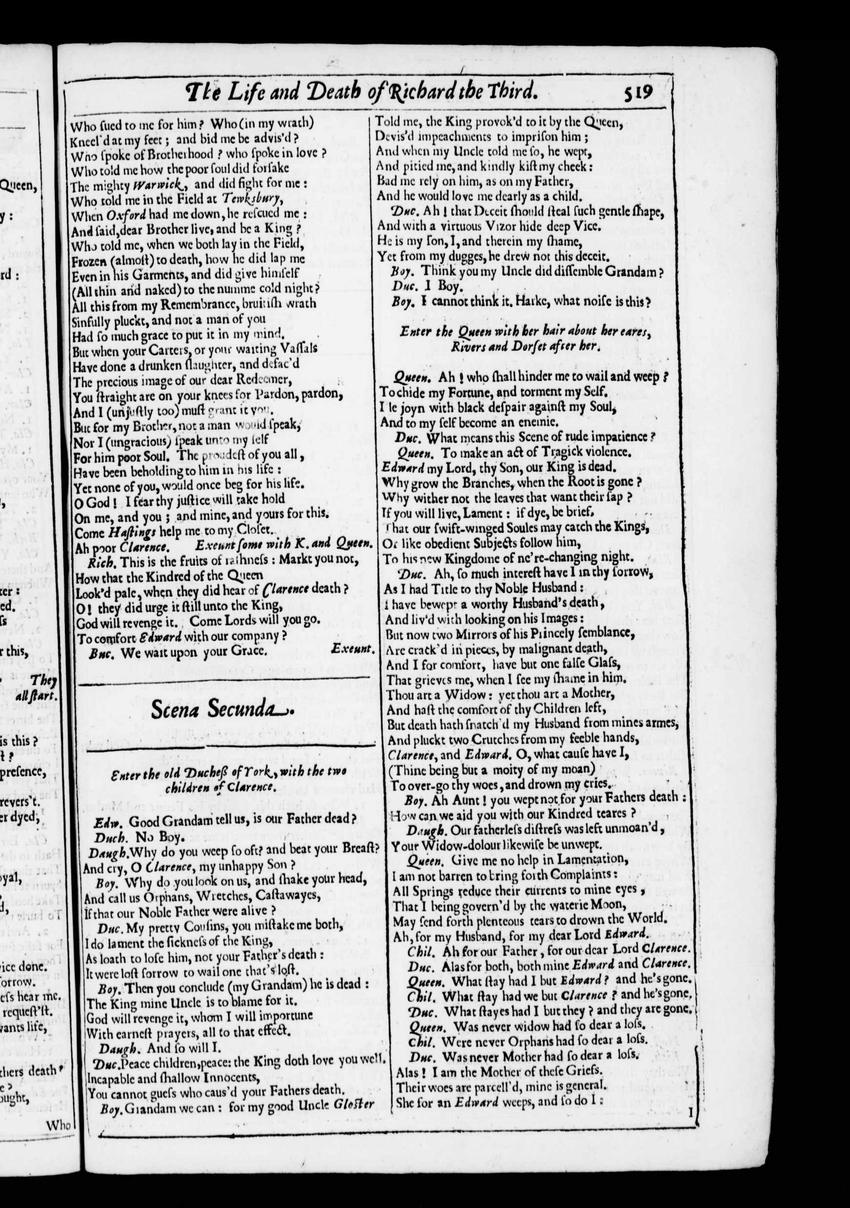 Queen,
y:
rd:
ter:
ed.
ſs
r this,
They
all ſtart.
is this?
t?
preſence,
revers't.
er dyed;
yal,
d,
vice done.
ſorrow.
eſs hear me.
requeſt'ſt.
vants life,
thers death
e?
ought,
Who
The Life and Death of Richard the Third. 519
Who ſued to me for him? Who (in my wrath)
Kneel'd at my feet; and bid me be advis'd?
Who ſpoke of Brotherhood? who ſpoke in love?
Who told me how the poor ſoul did forſake
The mighty Warwick, and did fight for me:
Who told me in the Field at Tewksbury,
When Oxford had me down, he reſcued me:
And ſaid, dear Brother live, and be a King?
Who told me, when we both lay in the Field,
Frozen (almoſt) to death, how he did lap me
Even in his Garments, and did give himſelf
(All thin and naked) to the numme cold night?
All this from my Remembrance, bruitiſh wrath
Sinfully pluckt, and not a man of you
Had ſo much grace to put it in my mind.
But when your Carters, or your waiting Vaſſals
Have done a drunken ſlaughter, and defac'd
The precious image of our dear Redeemer,
You ſtraight are on your knees for Pardon, pardon,
And I (unjuſtly too) muſt grant it you.
But for my Brother, not a man would ſpeak,
Nor I (ungracious) ſpeak unto my ſelf
For him poor Soul. The proudeſt of you all,
Have been beholding to him in his life:
Yet none of you, would once beg for his life.
O God! I fear thy juſtice will take hold
On me, and you; and mine, and yours for this.
Come Haſtings help me to my Cloſet.
Ah poor Clarence. Exeunt ſome with K. and Queen.
Rich. This is the fruits of raſhneſs: Markt you not,
How that the Kindred of the Queen
Look'd pale, when they did hear of Clarence death?
O! they did urge it ſtill unto the King,
God will revenge it. Come Lords will you go.
To comfort Edward with our company?
Buc. We wait upon your Grace. Exeunt.
Scena Secunda.
Enter the old Ducheſs of York, with the two
children of Clarence.
Edw. Good Grandam tell us, is our Father dead?
Duch. No Boy.
Daugh. Why do you weep ſo oft? and beat your Breaſt?
And cry, O Clarence, my unhappy Son?
Boy. Why do you look on us, and ſhake your head,
And call us Orphans, Wretches, Caſtawayes,
If that our Noble Father were alive?
Duc. My pretty Couſins, you miſtake me both,
I do lament the ſickneſs of the King,
As loath to loſe him, not your Father's death:
It were loſt ſorrow to wail one that's loſt.
Boy. Then you conclude (my Grandam) he is dead:
The King mine Uncle is to blame for it.
God will revenge it, whom I will importune
With earneſt prayers, all to that effect.
Daugh. And ſo will I.
Duc. Peace children, peace: the King doth love you well.
Incapable and ſhallow Innocents,
You cannot gueſs who caus'd your Fathers death.
Boy. Grandam we can: for my good Uncle Gloſter
Told me, the King provok'd to it by the Queen,
Devis'd impeachments to impriſon him;
And when my Uncle told me ſo, he wept,
And pitied me, and kindly kiſt my cheek:
Bad me rely on him, as on my Father,
And he would love me dearly as a child.
Duc. Ah! that Deceit ſhould ſteal ſuch gentle ſhape,
And with a virtuous Vizor hide deep Vice.
He is my ſon, I, and therein my ſhame,
Yet from my dugges, he drew not this deceit.
Boy. Think you my Uncle did diſſemble Grandam?
Duc. I Boy.
Boy. I cannot think it. Harke, what noiſe is this?
Enter the Queen with her hair about her eares,
Rivers and Dorſet after her.
Queen. Ah! who ſhall hinder me to wail and weep?
To chide my Fortune, and torment my Self.
I le joyn with black deſpair againſt my Soul,
And to my ſelf become an enemie.
Duc. What means this Scene of rude impatience?
Queen. To make an act of Tragick violence.
Edward my Lord, thy Son, our King is dead.
Why grow the Branches, when the Root is gone?
Why wither not the leaves that want their ſap?
If you will live, Lament: if dye, be brief,
That our ſwift-winged Soules may catch the Kings,
Or like obedient Subjects follow him,
To his new Kingdome of ne're-changing night.
Duc. Ah, ſo much intereſt have I in thy ſorrow,
As I had Title to thy Noble Husband:
I have bewept a worthy Husband's death,
And liv'd with looking on his Images:
But now two Mirrors of his Princely ſemblance,
Are crack'd in pieces, by malignant death,
And I for comfort, have but one falſe Glaſs,
That grieves me, when I ſee my ſhame in him.
Thou art a Widow: yet thou art a Mother,
And haſt the comfort of thy Children left,
But death hath ſnatch'd my Husband from mines armes,
And pluckt two Crutches from my feeble hands,
Clarence, and Edward. O, what cauſe have I,
(Thine being but a moity of my moan)
To over-go thy woes, and drown my cries.
Boy. Ah Aunt! you wept not for your Fathers death:
How can we aid you with our Kindred teares?
Daugh. Our fatherleſs diſtreſs was left unmoan'd,
Your Widow-dolour likewiſe be unwept.
Queen. Give me no help in Lamentation,
I am not barren to bring forth Complaints:
All Springs reduce their currents to mine eyes,
That I being govern'd by the waterie Moon,
May ſend forth plenteous tears to drown the World.
Ah, for my Husband, for my dear Lord Edward.
Chil. Ah for our Father, for our dear Lord Clarence.
Duc. Alas for both, both mine Edward and Clarence.
Queen. What ſtay had I but Edward? and he's gone.
Chil. What ſtay had we but Clarence? and he's gone.
Duc. What ſtayes had I but they? and they are gone.
Queen. Was never widow had ſo dear a loſs.
Chil. Were never Orphans had ſo dear a loſs.
Duc. Was never Mother had ſo dear a loſs.
Alas! I am the Mother of theſe Griefs.
Their woes are parcell'd, mine is general.
She for an Edward weeps, and ſo do I:
I